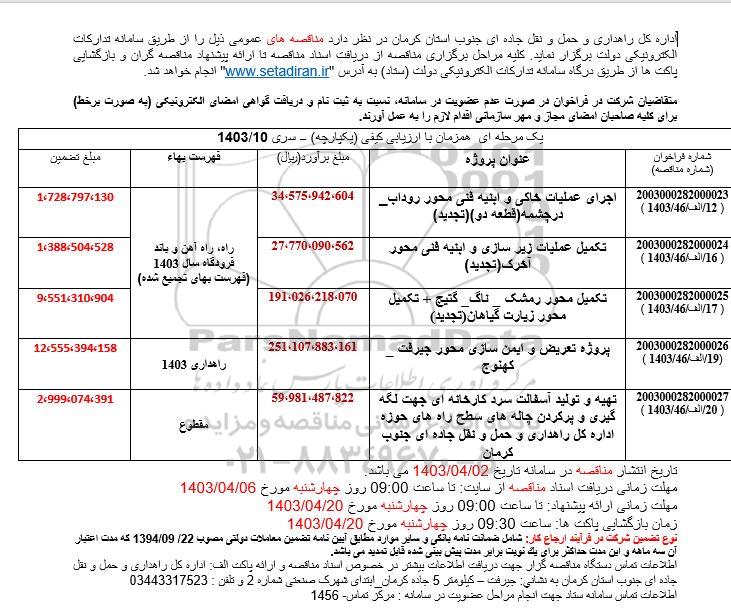 اداره کل راهداری و حمل و نقل جاده ای جنوب استان کرمان در نظر دارد مناقصه های عمومی ذیل را از طریق سامانه تدارکات
الکترونیکی دولت برگزار نماید. کلیه مراحل برگزاری مناقصه از دریافت اسناد مناقصه تا ارائه پیشنهاد مناقصه گران و بازگشایی
پاکت ها از طریق درگاه سامانه تدارکات الکترونیکی دولت (ستاد) به آدرس "www.setadiran.ir" انجام خواهد شد.
متقاضیان شرکت در فراخوان در صورت عدم عضویت در سامانه، نسبت به ثبت نام و دریافت گواهی امضای الکترونیکی (به صورت برخط)
برای کلیه صاحبان امضای مجاز و مهر سازمانی اقدام لازم را به عمل آورند.
یک مرحله ای همزمان با ارزیابی کیفی (یکپارچه) – سری 1403/10
شماره فراخوان
(شماره مناقصه)
عنوان پروژه
مبلغ برآورد(ریال)
فهرست بهاء
مبلغ تضمین
2003000282000023
( 12/الف/1403/46 )
اجرای عملیات خاکی و ابنیه فنی محور روداب_
درچشمه(قطعه دو)(تجدید)
34،575،942،604
راه، راه آهن و باند
فرودگاه سال 1403
(فهرست بهای تجمیع شده)
1،728،797،130
2003000282000024
( 16/الف/1403/46 )
تکمیل عملیات زیر سازی و ابنیه فنی محور
آخرک(تجدید)
27،770،090،562
1،388،504،528
2003000282000025
( 17/الف/1403/46 )
تکمیل محور رمشک _ ناگ_ گتیچ + تکمیل
محور زیارت گیاهان(تجدید)
191،026،218،070
9،551،310،904
2003000282000026
(19/الف/1403/46 )
پروژه تعریض و ایمن سازی محور جیرفت _
کهنوج
251،107،883،161
راهداری 1403
12،555،394،158
2003000282000027
( 20/الف/1403/46 )
تهیه و تولید آسفالت سرد کارخانه ای جهت لگه
گیری و پرکردن چاله های سطح راه های حوزه
اداره کل راهداری و حمل و نقل جاده ای جنوب
کرمان
59،981،487،822
مقطوع
2،999،074،391
ParsNamadData
۰۲۱-۸۸۳۴۹۶۷۰-۵
تاریخ انتشار مناقصه در سامانه تاریخ 1403/04/02 می باشد.
مهلت زمانی دریافت اسناد مناقصه از سایت: تا ساعت 09:00 روز چهارشنبه مورخ 1403/04/06
مهلت زمانی ارائه پیشنهاد: تا ساعت 09:00 روز چهارشنبه مورخ 1403/04/20
زمان بازگشایی پاکت ها: ساعت 09:30 روز چهارشنبه مورخ 1403/04/20
نوع تضمین شرکت در فرآیند ارجاع کار: شامل ضمانت نامه بانکی و سایر موارد مطابق آیین نامه تضمین معاملات دولتی مصوب 22/ 1394/09 که مدت اعتبار
آن سه ماهه و این مدت حداکثر برای یک نوبت برابر مدت پیش بینی شده قابل تمدید می باشد.
اطلاعات تماس دستگاه مناقصه گزار جهت دریافت اطلاعات بیشتر در خصوص اسناد مناقصه و ارائه پاکت الف: اداره کل راهداری و حمل و نقل
جاده ای جنوب استان کرمان به نشانی: جیرفت – کیلومتر 5 جاده کرمان_ابتدای شهرک صنعتی شماره 2 و تلفن : 03443317523
اطلاعات تماس سامانه ستاد جهت انجام مراحل عضویت در سامانه : مرکز تماس- 1456